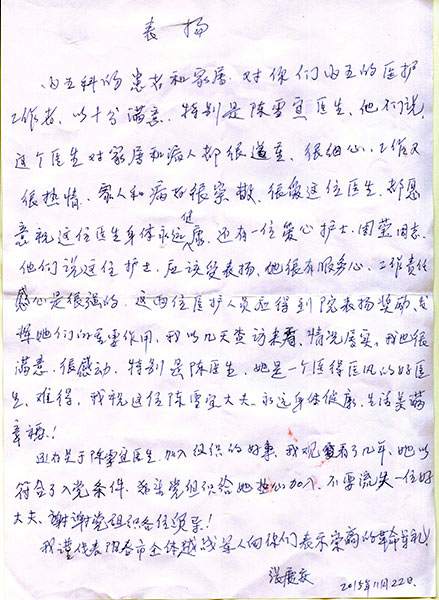 表扬
内五科的患者和家属对你们内五的医护
工作者，以十分满意，特别是陈雪宜医生，他们说，
这个医生对家属和病人都很道重，很细心，工作又
很热情，家人和病者很崇敬，很爱这位医生，都愿
意祝这位医生身体永远健康，还有一位爱心护士周莹同志，
他们说这位护士应该受表扬，她很有服务心，工作责任
感心是很强的，这两位医护人员应得到院表扬奖励，发
挥她们的重作用，我以几天查访来看，情况属实，我也很
满意，很感动，特别是陈医生，她是一个医得医风的好医
生，难得，我祝这位陈雪宜大夫，永远身体健康，生活美满
幸福！
还有关于陈雪宜医生，加入组织的好事，我观查看了几年，她以
符合了入党条件，党组织给她加入，不要流失一位好
大夫，谢谢党组织各位领导！
我谨代表阳春市全体越战军人向你们表示崇高的革命军礼！
张庆
2015年11月22日